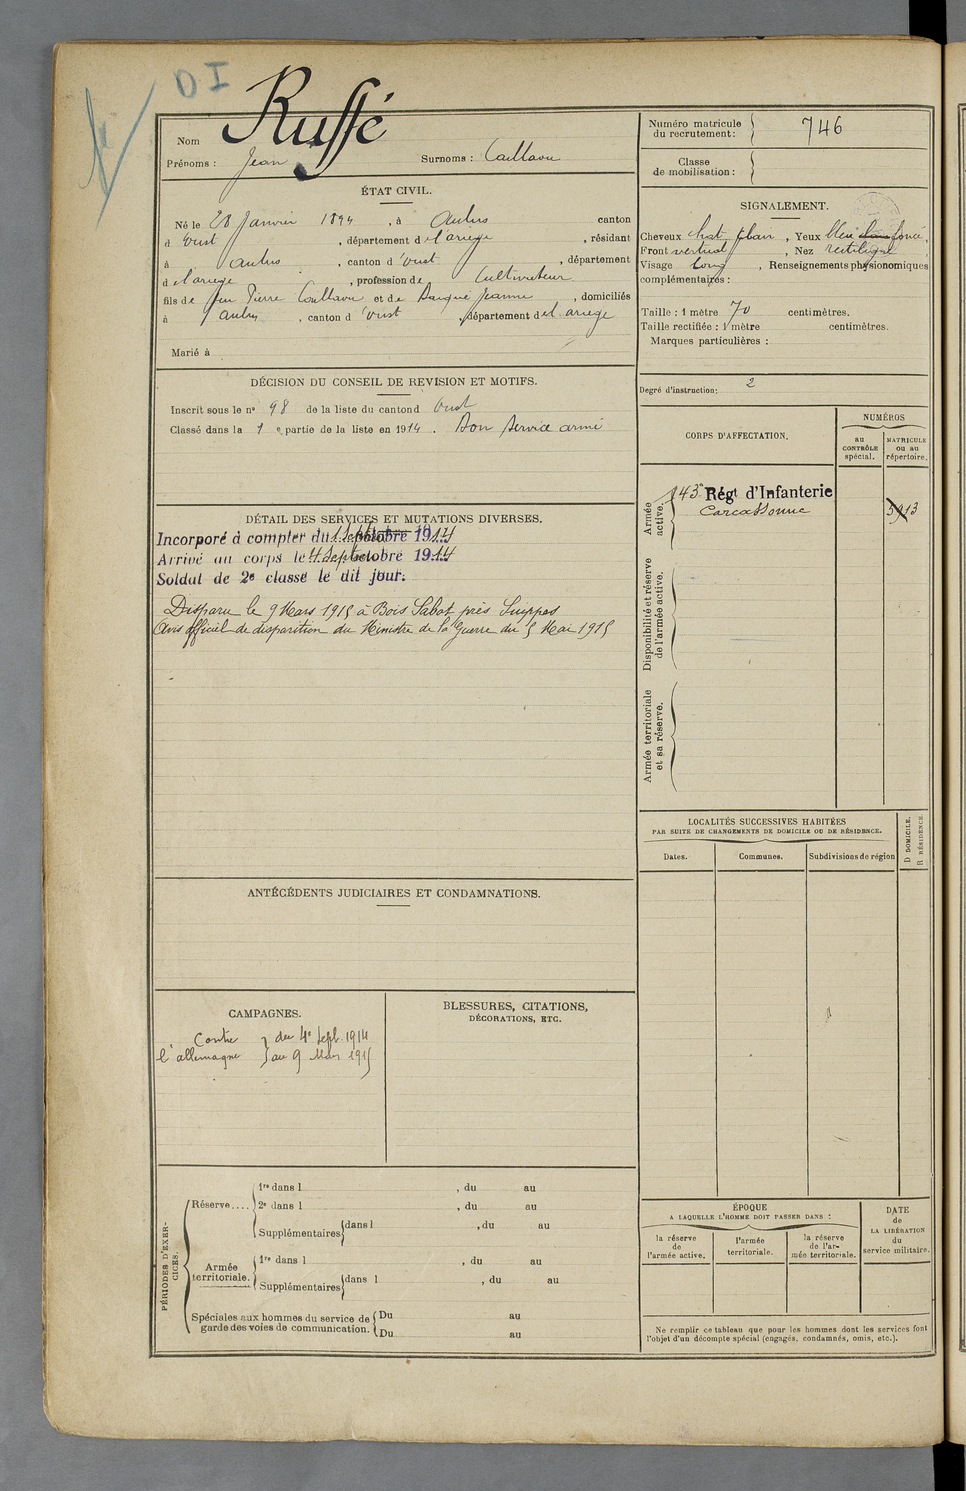 D I
Ruffé
Nom
Prénoms : Jean Surnoms : Caillaou
ÉTAT CIVIL.
Né le 28 Janvier 1894, à Aulus canton
d'Oust, département d el'ariege, résidant
à Aulus, canton d'Oust, département
d el'ariege, profession de Cultivateur
fils de feu Pierre Caillaou et de Jeanne, domiciliés
à aulus, canton d'Oust, département d el ariege
Marié à
DÉCISION DU CONSEIL DE REVISION ET MOTIFS.
Inscrit sous le n° 98 de la liste du canton d Oust
Classé dans la 1 e partie de la liste en 1914. Bon service armé
DÉTAIL DES SERVICES ET MUTATIONS DIVERSES.
Incorporé à compter du 1 Septembre 1914
Arrivé au corps le 4 Septembre 1914
Soldat de 2e classe le dit jour.
Disparu le 9 Mars 1915 à Bois Sabot près Suippes
Avis officiel de disparition du Ministre de la Guerre du 5 Mai 1915
ANTÉCÉDENTS JUDICIAIRES ET CONDAMNATIONS.
CAMPAGNES.
Contre l'allemagne } du 4e Sept. 1914
au 9 Mars 1915
BLESSURES, CITATIONS,
DÉCORATIONS, ETC.
PÉRIODES D'EXERCICES.
Réserve....
1re dans l , du au
2e dans l , du au
Supplémentaires dans l , du au
Armée territoriale.
1re dans l , du au
Supplémentaires dans l , du au
Spéciales aux hommes du service de
garde des voies de communication.
Du au
Du au
Numéro matricule
du recrutement : 746
Classe
de mobilisation :
SIGNALEMENT.
Cheveux chat, Yeux bleu foncé,
Front vertical, Nez rectiligne,
Visage long, Renseignements physionomiques
complémentaires :
Taille : 1 mètre 70 centimètres.
Taille rectifiée : 1 mètre centimètres.
Marques particulières :
Degré d'instruction : 2
CORPS D'AFFECTATION.
NUMÉROS
au
CONTRÔLE
spécial.
MATRICULE
ou au
répertoire.
Armée
active.
143e Régt d'Infanterie
Carcassonne
5913
Disponibilité et réserve
de l'armée active.
Armée territoriale
et sa réserve.
LOCALITÉS SUCCESSIVES HABITÉES
PAR SUITE DE CHANGEMENTS DE DOMICILE OU DE RÉSIDENCE.
Dates. Communes. Subdivisions de région
D DOMICILE.
R RÉSIDENCE.
ÉPOQUE
A LAQUELLE L'HOMME DOIT PASSER DANS :
la réserve
de
l'armée active.
l'armée
territoriale.
la réserve
de l'ar-
mée territoriale.
DATE
de
LA LIBÉRATION
du
service militaire.
Ne remplir ce tableau que pour les hommes dont les services font
l'objet d'un décompte spécial (engagés, condamnés, omis, etc.).